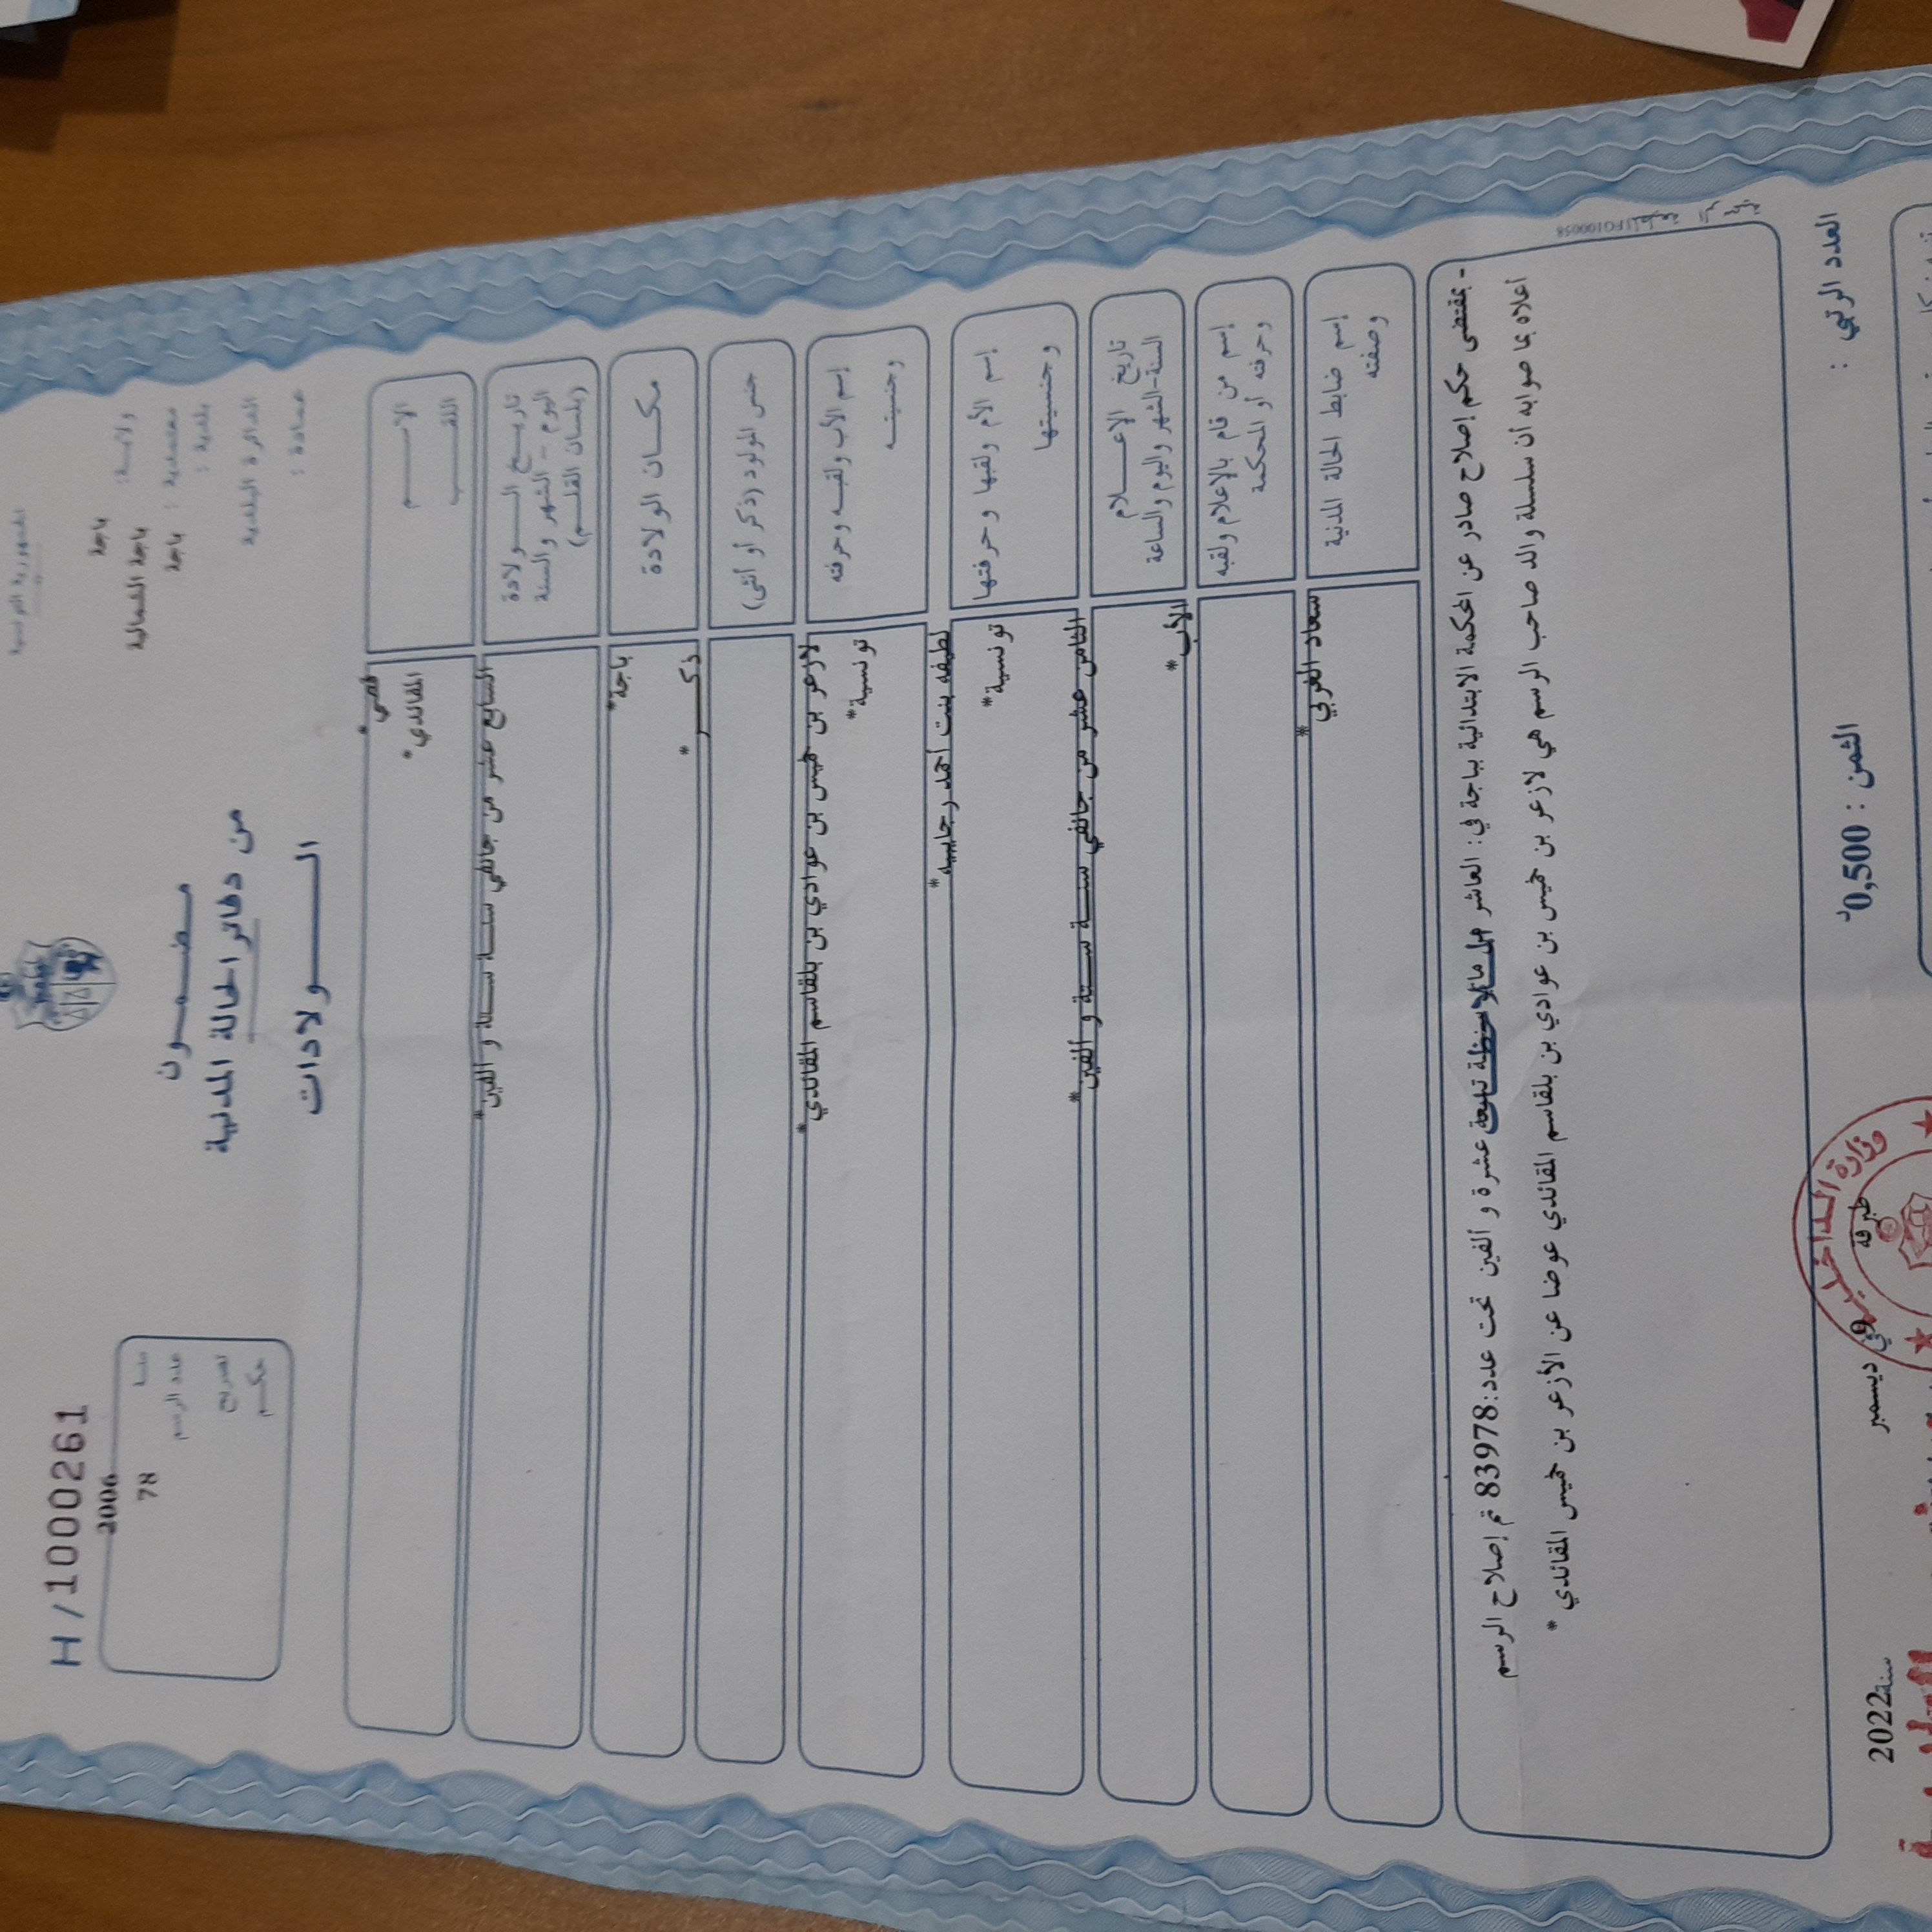 الجمهورية التونسية
H / 1000261
ولاية: باجة
معتمدية : باجة الشمالية
بلدية : باجة
الدائرة البلدية
عمادة :
سنة 2006
عدد الرسم 78
تصريح
حكم
مضمون
من دفاتر الحالة المدنية
الولادات
الاسم
اللقب
قصي *
المقائدي *
تاريخ الولادة
اليوم - الشهر والسنة
(بلسان القلم)
السابع عشر من جانفي سنة ستة و ألفين *
مكان الولادة
باجة *
جنس المولود (ذكر أو أنثى)
ذكر *
إسم الأب ولقبه وحرفته
وجنسيته
لازعر بن خميس بن عوادي بن بلقاسم المقائدي *
تونسية *
إسم الأم ولقبها وحرفتها
وجنسيتها
لطيفه بنت أحمد رجايبيه *
تونسية *
تاريخ الإعلام
السنة-الشهر واليوم والساعة
الثامن عشر من جانفي سنة ستة و ألفين *
إسم من قام بالإعلام ولقبه
وحرفته أو المحكمة
الأب *
إسم ضابط الحالة المدنية
وصفته
سعاد الغربي *
- بمقتضى حكم إصلاح صادر عن المحكمة الابتدائية بباجة في: العاشر من عشرة و ألفين تحت عدد:83978 تم إصلاح الرسم
أعلاه بما صوابه أن سلسلة والد صاحب الرسم هي لازعر بن خميس بن عوادي بن بلقاسم المقائدي عوضا عن الأزعر بن خميس المقائدي *
العدد الرتبي :
الثمن : 0,500د
طبرقة في 9 ديسمبر سنة 2022
وزارة الداخلية